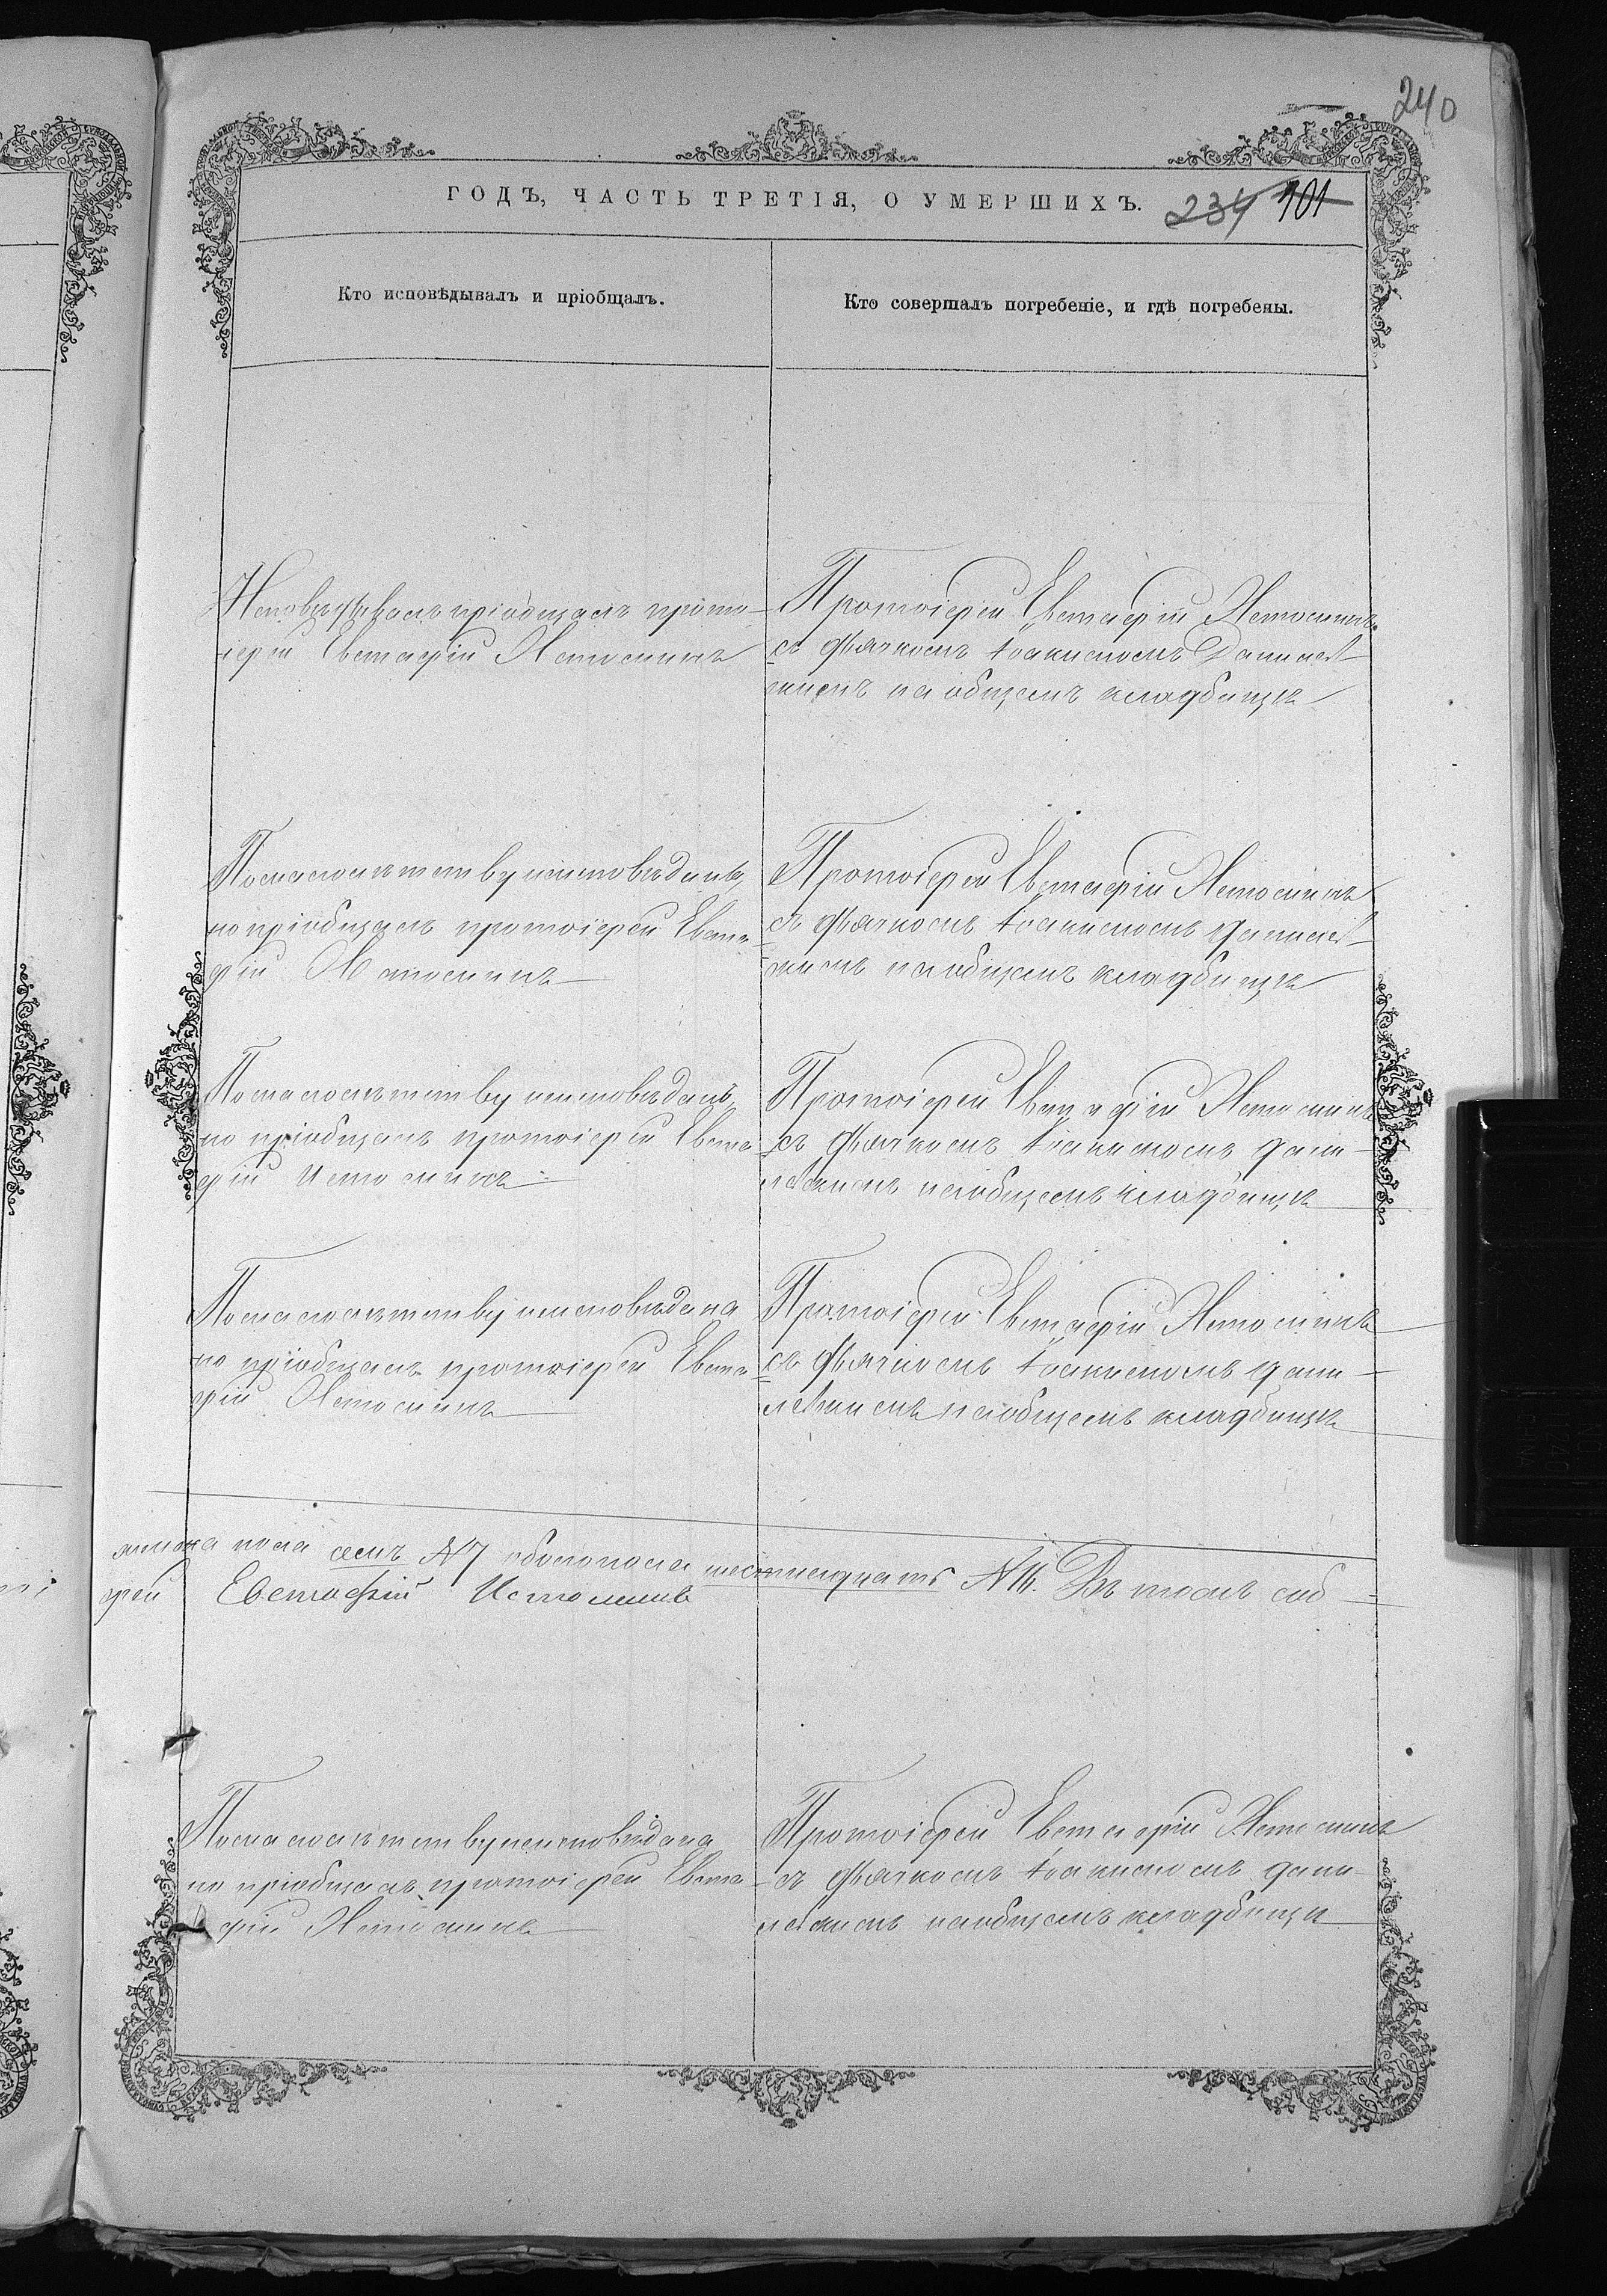 240
ГОДЪ, ЧАСТЬ ТРЕТІЯ, О УМЕРШИХЪ.
234 101
Кто исповѣдывалъ и пріобщалъ.
Кто совершалъ погребеніе, и гдѣ погребены.
Исповѣдывалъ пріобщалъ прото-
іерей Евстафій Истоминъ
Протоіерей Евстафій Истоминъ
съ дьячкомъ Іоакимомъ
на общемъ кладбищѣ
По малолѣтству неисповѣданъ,
но пріобщалъ протоіерей Евста
фій Истоминъ
Протоіерей Евстафій Истоминъ
съ дьячкомъ Іоакимомъ
на общемъ кладбищѣ
По малолѣтству неисповѣданъ,
но пріобщалъ протоіерей Евста
фій Истоминъ
Протоіерей Евстафій Истоминъ
съ дьячкомъ Іоакимомъ
на общемъ кладбищѣ
По малолѣтству неисповѣдана
но пріобщалъ протоіерей Евста
фій Истоминъ
Протоіерей Евстафій Истоминъ
съ дьячкомъ Іоакимомъ
на общемъ кладбищѣ
пола семь №7 обоего пола шестнадцать №16. Въ томъ
рей Евстафій Истоминъ
По малолѣтству неисповѣдана
но пріобщалъ протоіерей Евста
фій Истоминъ
Протоіерей Евстафій Истоминъ
съ дьячкомъ Іоакимомъ
на общемъ кладбищѣ